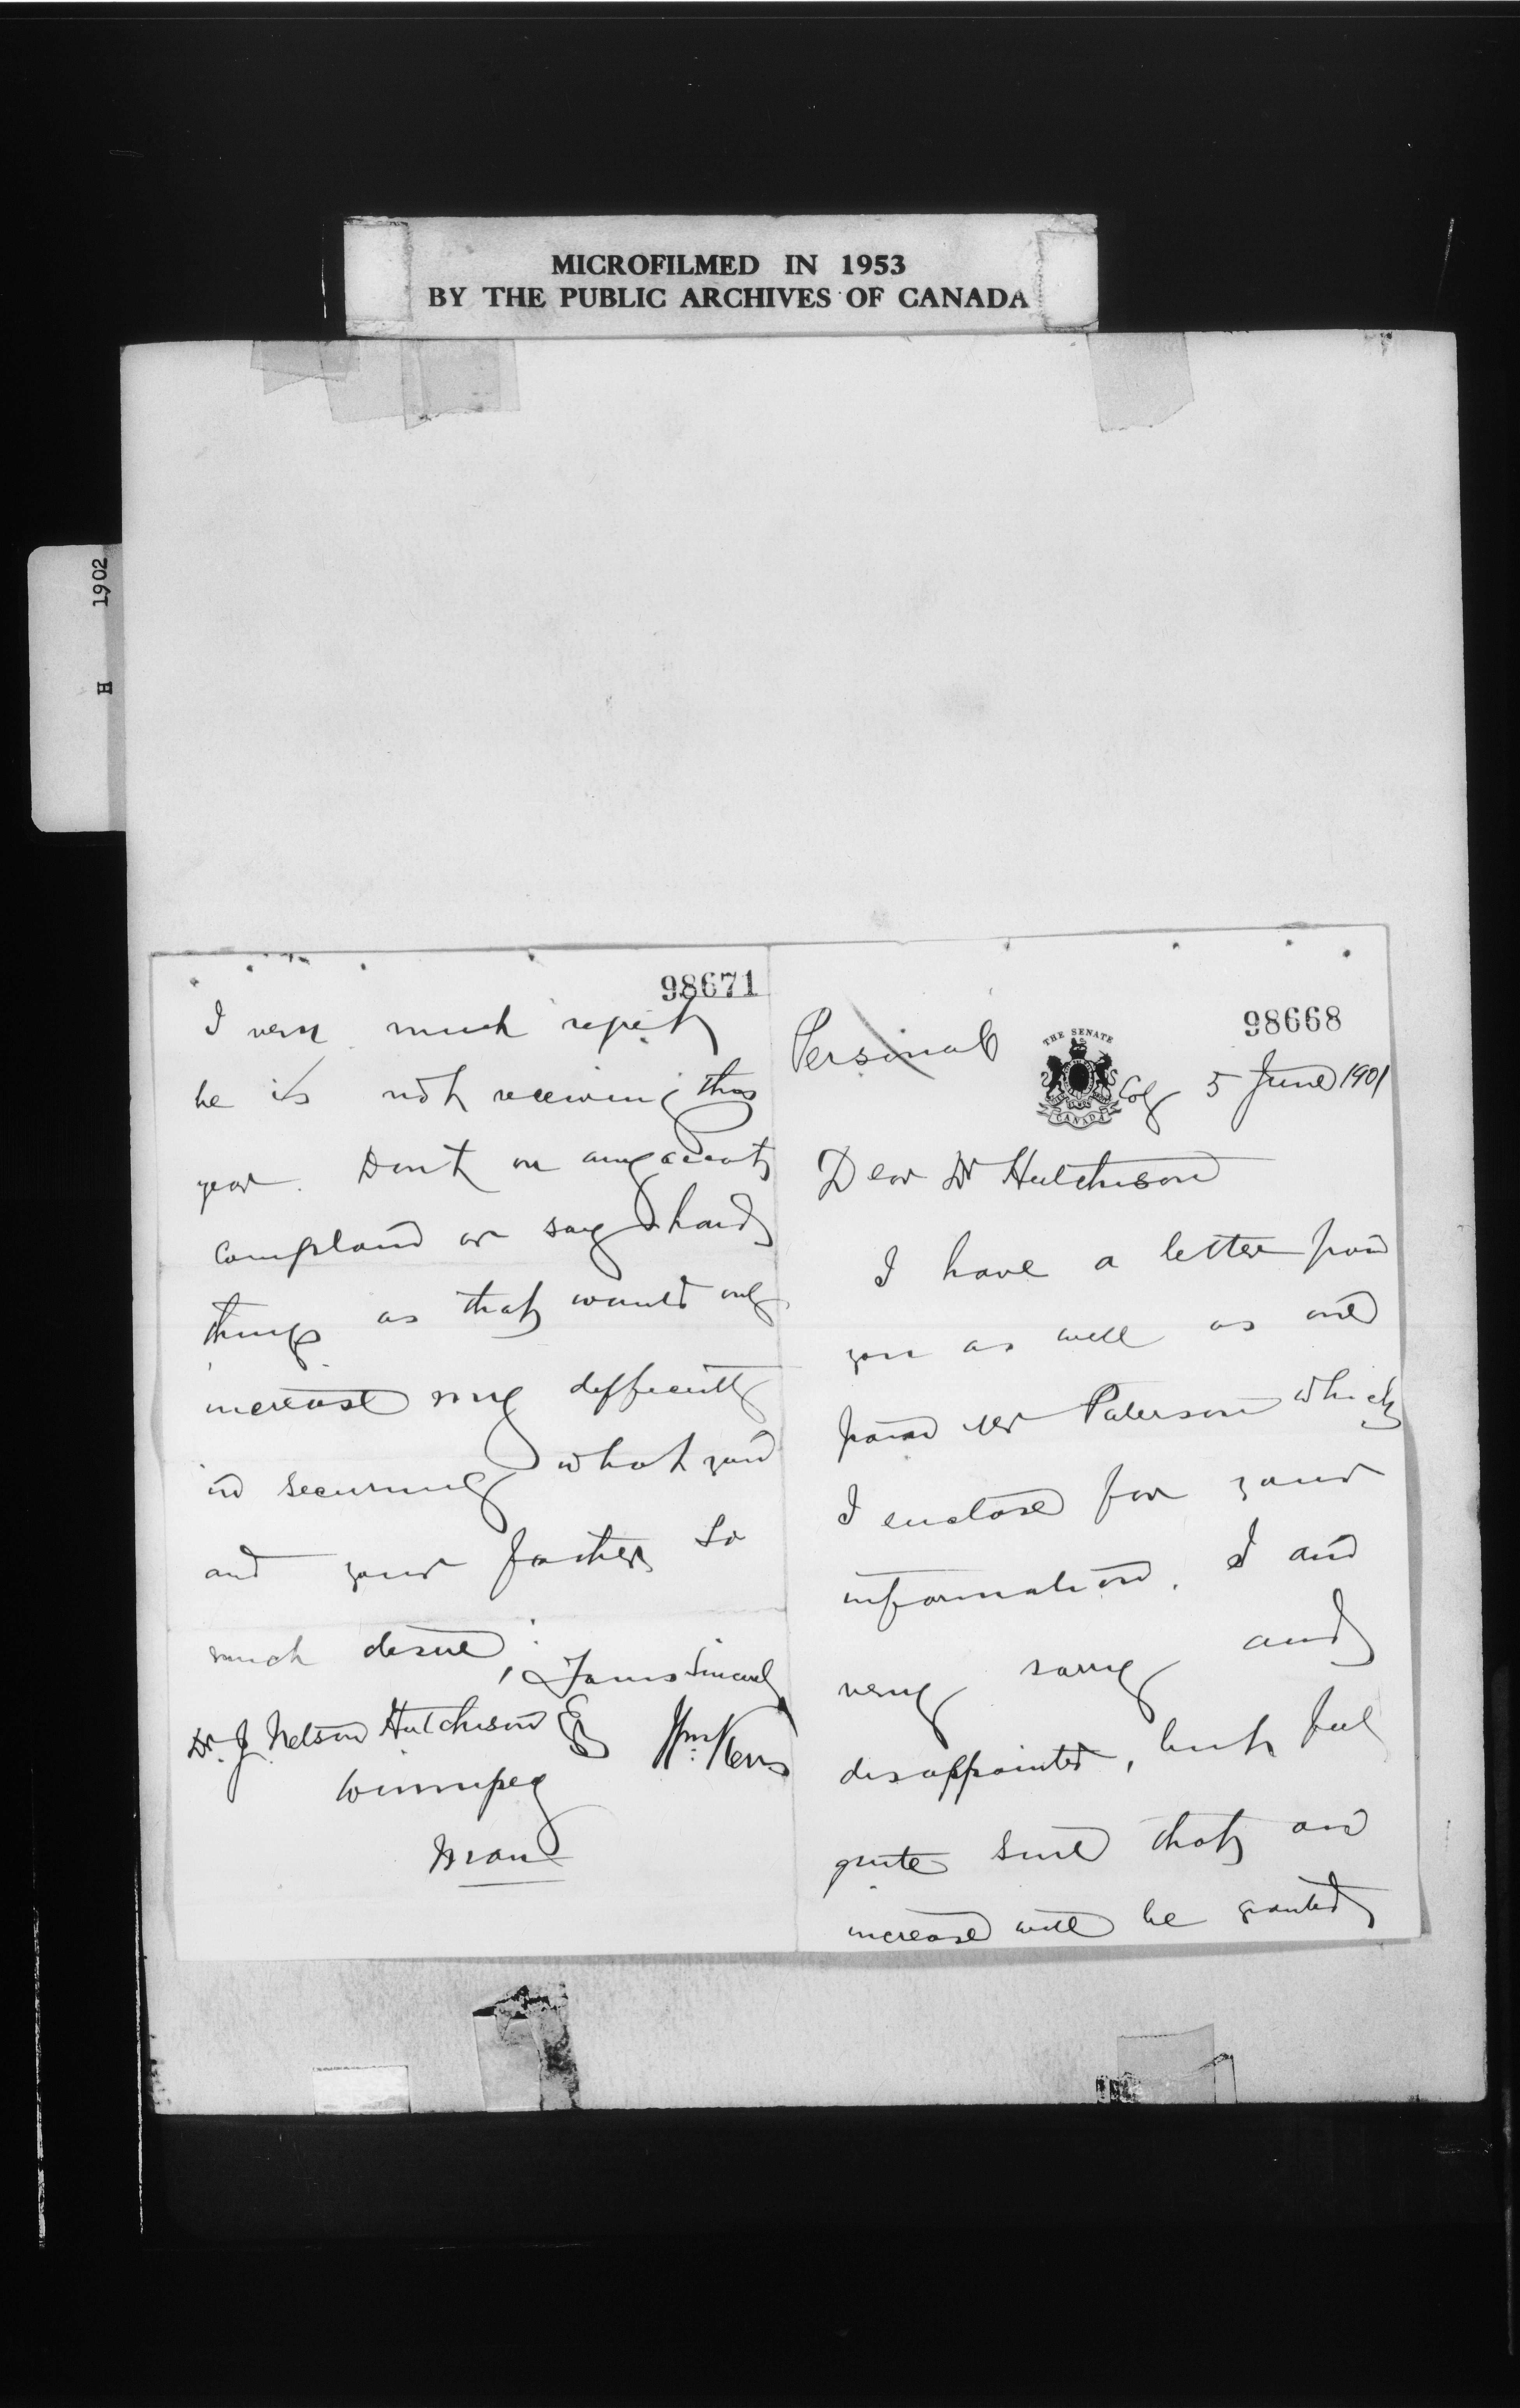 MICROFILMED IN 1953
BY THE PUBLIC ARCHIVES OF CANADA
1902
H
98668
Personal
THE SENATE
CANADA
Cobg 5 June 1901
Dear Dr Hutchison
I have a letter from
you as well as one
from Mr Paterson which
I enclose for your
information. I am
very sorry and
disappointed, but feel
quite sure that an
increase will be granted
98671
I very much regret
he is not receiving this
year. Dont on any account
complain or say hard
things as that would only
increase my difficulty
in securing what you
and your father so
much desire,
Yours Sincerely
Wm Kerr
Dr. J. Nelson Hutchison Esq
Winnipeg
Man